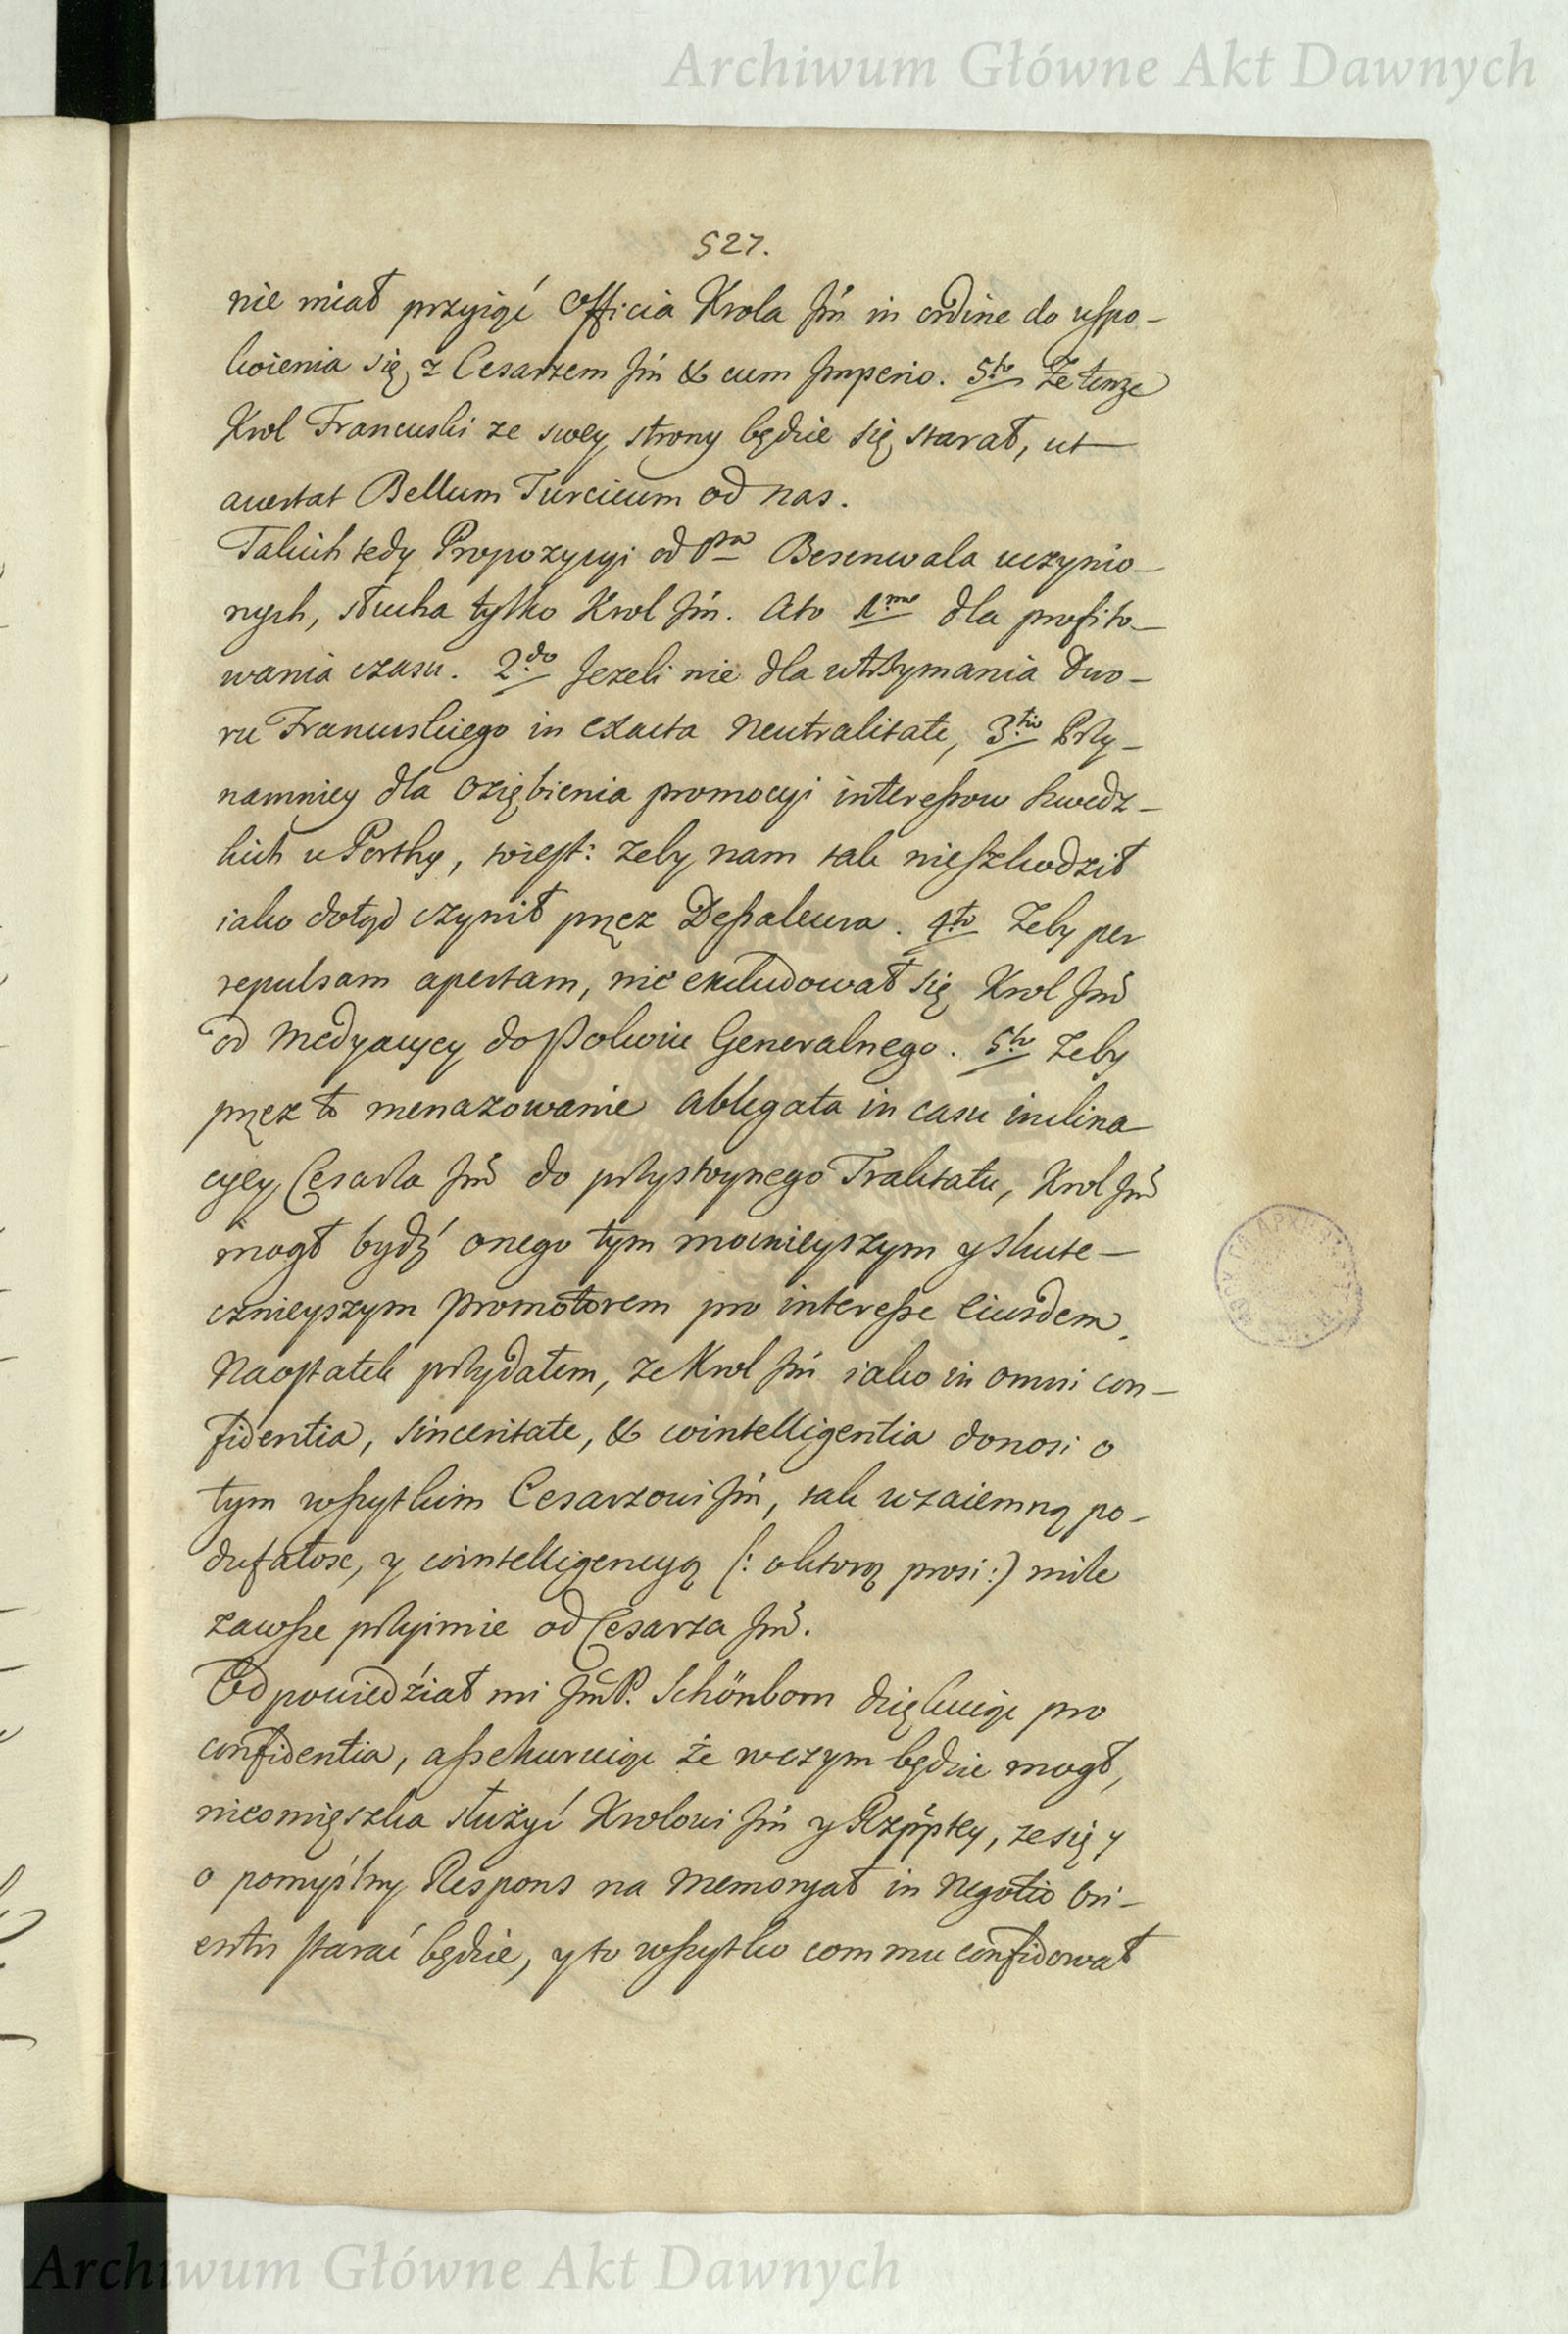 Archiwum Główne Akt Dawnych
527.
nie miał przyiąć Officia Krola Jm̃ in ordine do uspo-
koienia się z Cesarzem Jm̃ & cum Imperio. 5to Ze tenze
Krol Francuski ze swey strony będzie się starał, ut
avertat Bellum Turcicum od nas.
Takich tedy Propozycyi od Pna Besenwala uczynio-
nych, słucha tylko Krol Jm̃. Ato 1mo dla profito-
wania czasu. 2do Jezeli nie dla utrzymania Dwo-
ru Francuskiego in exacta Neutralitate, 3tio Przy-
namniey dla oziębienia promocyi interessow Szwedz-
kich u Porthy, toiest: zeby nam tak nieszkodził
iako dotąd czynił przez Dessaleura. 4to Zeby per
repulsam apertam, nie excludował się Krol Jm̃
od Medyacyey do Pokoiu Generalnego. 5to Zeby
przez to menazowanie Ablegata in casu inclina
cyey Cesarza Jm̃ do przystoynego Traktatu, Krol Jm̃
mogł bydź onego tym mocnieyszym y skute-
cznieyszym promotorem pro interesse eiusdem.
Naostatek przydałem, ze Krol Jm̃ iako in omni con-
fidentia, sinceritate, & cointelligentia donosi o
tym wszytkim Cesarzowi Jm̃, tak wzaiemną po-
dufałosc, y cointelligencyą (: oktorą prosi:) mile
zawsze przyimie od Cesarza Jm̃.
Odpowiedźiał mi Jm̃ P. Schönborn dziękuiąc pro
confidentia, assekuruiąc że wczym będzie mogł,
nieomięszka służyć Krolowi Jm̃ y Rzpptey, ze się y
o pomyślny Respons na Memoryał in Negotio Ori-
entis starać będzie, y to wszytko com mu confidował
Archiwum Główne Akt Dawnych